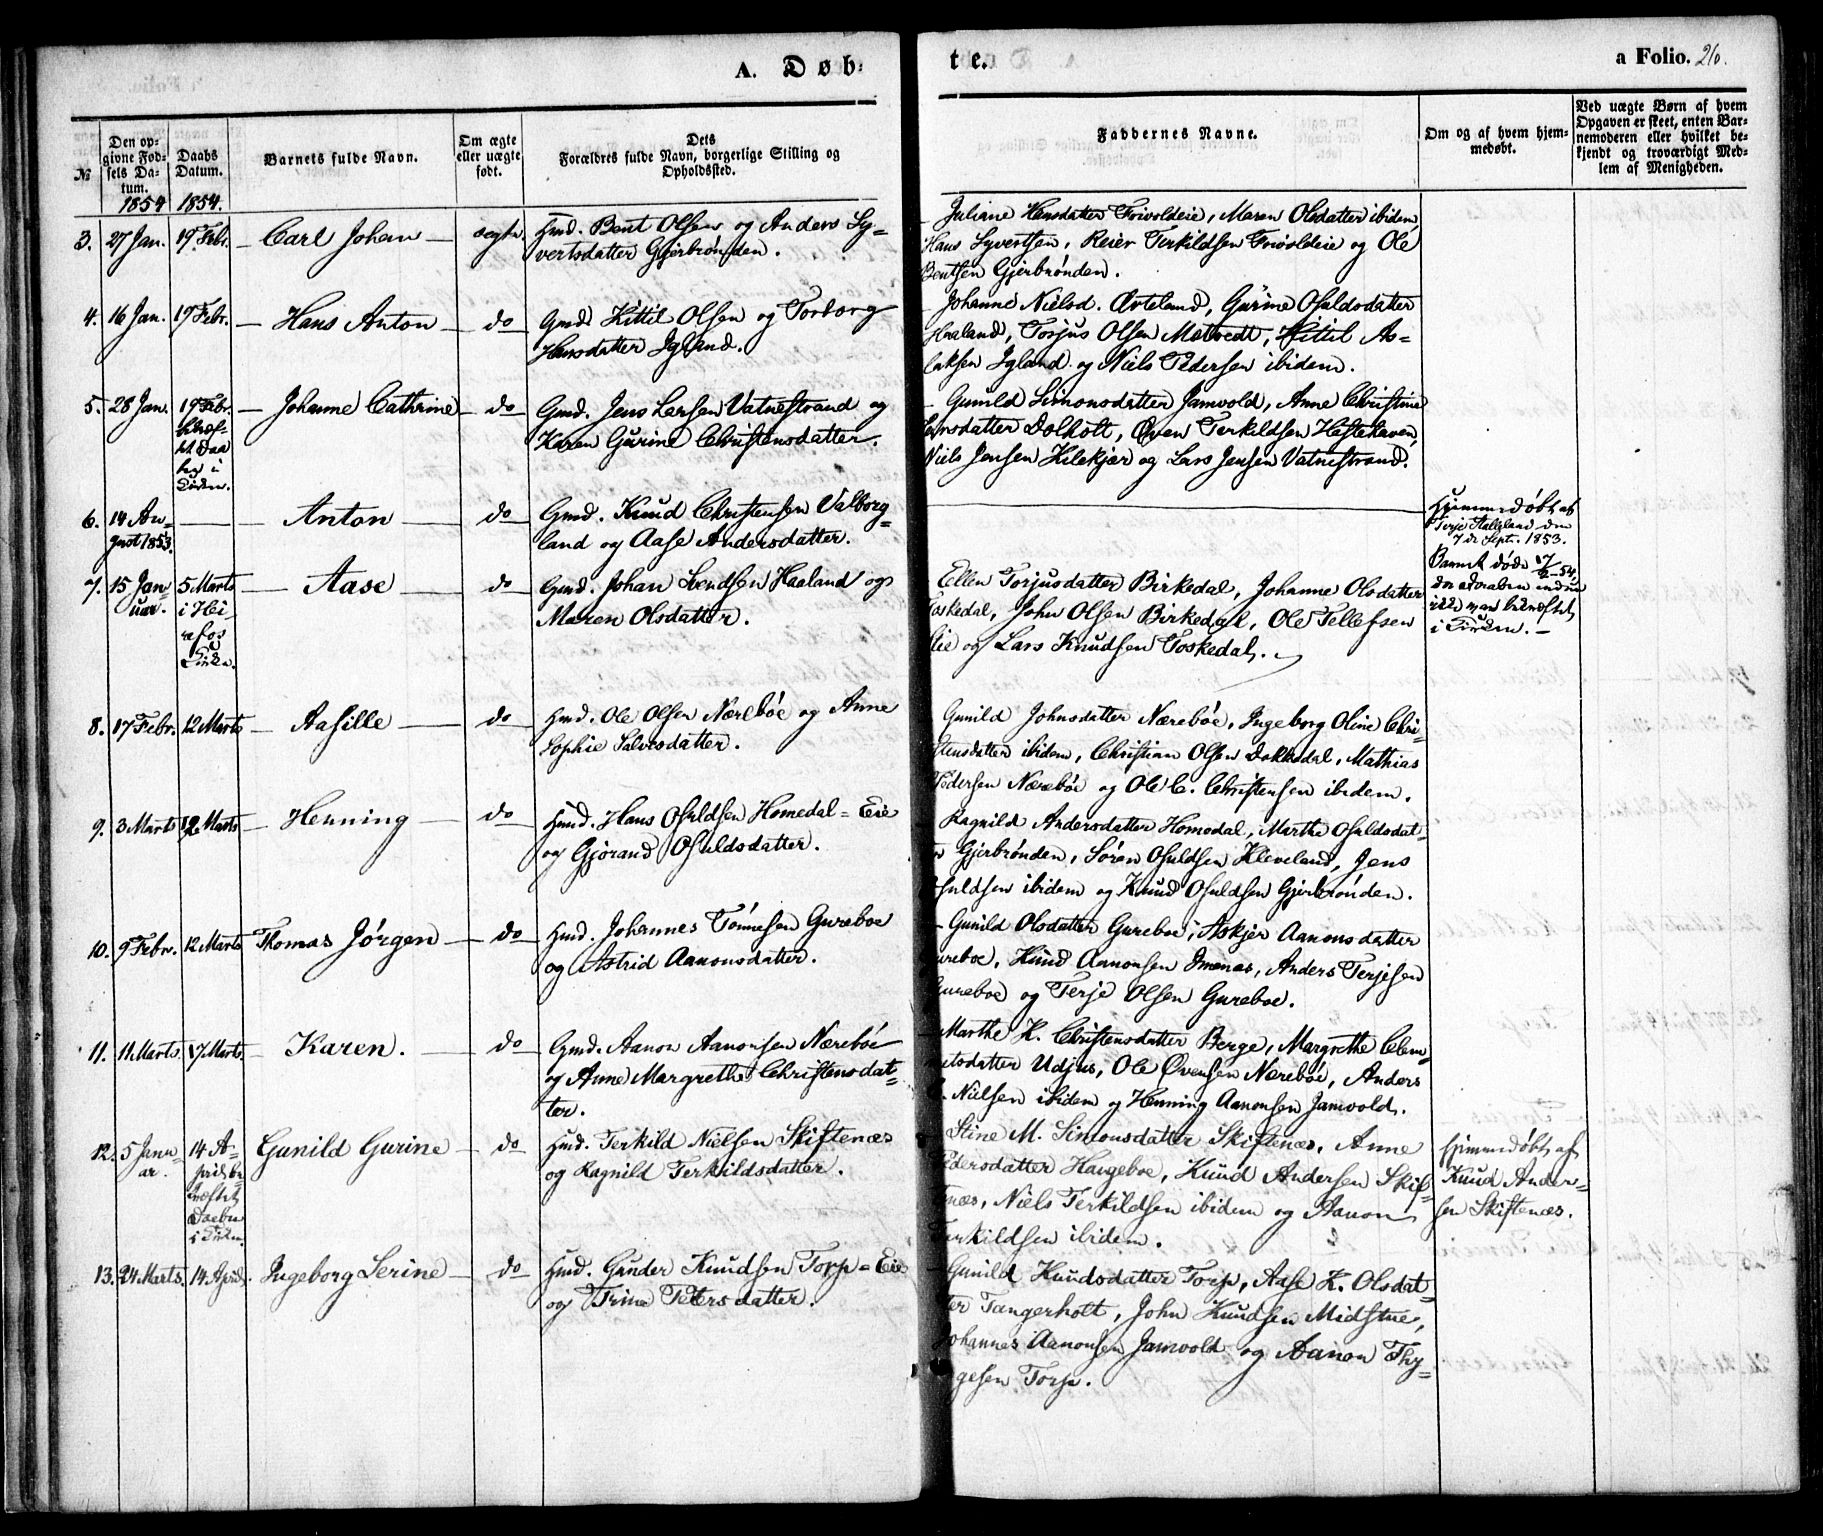 A. Døb-
te.
a Folio. 26.
№
Den op-
givne Fød-
sels Da-
tum.
1854
Daabs
Datum.
1854.
Barnets fulde Navn.
Om ægte
eller uægte
født.
Dets
Forældres fulde Navn, borgerlige Stilling og
Opholdssted.
Faddernes Navne.
Om og af hvem hjem-
medøbt.
Ved uægte Børn af hvem
Opgaven er skeet, enten Bar-
nemoderen eller hvilket be-
kjendt og troværdigt Med-
lem af Menigheden.
3. 27 Jan. 19 Febr. Carl Johan ægte Hmd. Bent Olsen og Anders Sy-
vertsdatter Gjerbrønden.
Juliane Hansdatter Frivoldeie, Maren Olsdatter ibidem,
Hans Syvertsen, Reier Terkildsen Frivoldeie og Ole
Bentsen Gjerbrønden.
4. 16 Jan. 19 Febr. Hans Anton do Gmd. Kittil Olsen og Torborg
Hansdatter Igland.
Johanne Nielsd. Øvteland, Gurine Osuldsdatter
Haaland, Torjus Olsen Møtvedt, Kittil As-
laksen Igland og Niels Pedersen ibidem.
5. 28 Jan. 19 Febr.
bekræf-
tet Daa
ben i
Kirken.
Johanne Cathrine do Gmd. Jens Larsen Vatnestrand og
Karen Gurine Christensdatter.
Gunild Simonsdatter Jamvold, Anne Christine
Larsdatter Dolholt, Øven Terkildsen Hestehaven,
Niels Jensen Kilekjær og Lars Jensen Vatnestrand.
6. 14 Au-
gust 1853. Anton do Gmd. Knud Christensen Valborg-
land og Aase Andersdatter.
Hjemmedøbt af
Terje Aalgland den
7de Sept. 1853.
Barnet døde 17/2-54,
daaben endnu
ikke var bekræftet
i Kirken.
7. 15 Jan
uar. 5 Marts
i Hei
refos
Kirke. Aase do Gmd. Johan Svendsen Haaland og
Maren Olsdatter.
Ellen Torjusdatter Birkedal, Johanne Olsdatter
Toskedal, John Olsen Birkedal, Ole Tellefsen
Lie og Lars Knudsen Toskedal.
8. 17 Febr. 12 Marts Aasille do Hmd. Ole Olsen Nærebøe og Anne
Sophie Salvesdatter.
Gunild Johnsdatter Nærebøe, Ingeborg Oline Chri-
stensdatter ibidem, Christian Olsen Dokkedal, Mathias
Pedersen Nærebøe og Ole C. Christensen ibidem.
9. 3 Marts 12 Marts Henning do Hmd. Hans Osuldsen Homedal-Eie
og Gjørand Osuldsdatter.
Ragnild Andersdatter Homedal, Marthe Osuldsdat-
ter Gjerbrønden, Søren Osuldsen Kleveland, Jens
Osuldsen ibidem og Knud Osuldsen Gjerbrønden.
10. 9 Febr. 12 Marts Thomas Jørgen do Hmd. Johannes Tønnesen Gureboe
og Astrid Aanonsdatter.
Gunild Olsdatter Gureboe, Askjer Aanonsdatter
Gureboe, Knud Aanonsen Imenæs, Anders Terjesen
Gureboe og Terje Olsen Gureboe.
11. 11 Marts. 17 Marts. Karen. do Gmd. Aanon Aanonsen Nærebøe
og Anne Margrethe Christensdat-
ter.
Marthe K. Christensdatter Berge, Margrethe Clem-
metsdatter Udjus, Ole Øvensen Nærebøe, Anders
Nielsen ibidem og Henning Aanonsen Jamvold.
12. 5 Janu-
ar. 14 A-
pril be
kræftet
Daaben
i Kirken. Gunild Gurine do Hmd. Terkild Nielsen Skiftenæs
og Ragnild Terkildsdatter.
Stine M. Simonsdatter Skiftenæs, Anne
Pedersdatter Haugeboe, Knud Andersen Skif-
tenæs, Niels Terkildsen ibidem og Aanon
Terkildsen ibidem.
Hjemmedøbt af
Knud Ander-
sen Skiftenæs.
13. 24 Marts. 14 April. Ingeborg Serine do Hmd. Gunder Knudsen Torp-Eie
og Trine Petersdatter.
Gunild Knudsdatter Torp, Aase K. Olsdat-
ter Tangerholt, John Knudsen Midstue,
Johannes Aanonsen Jamvold og Aanon Thy-
gesen Torp.